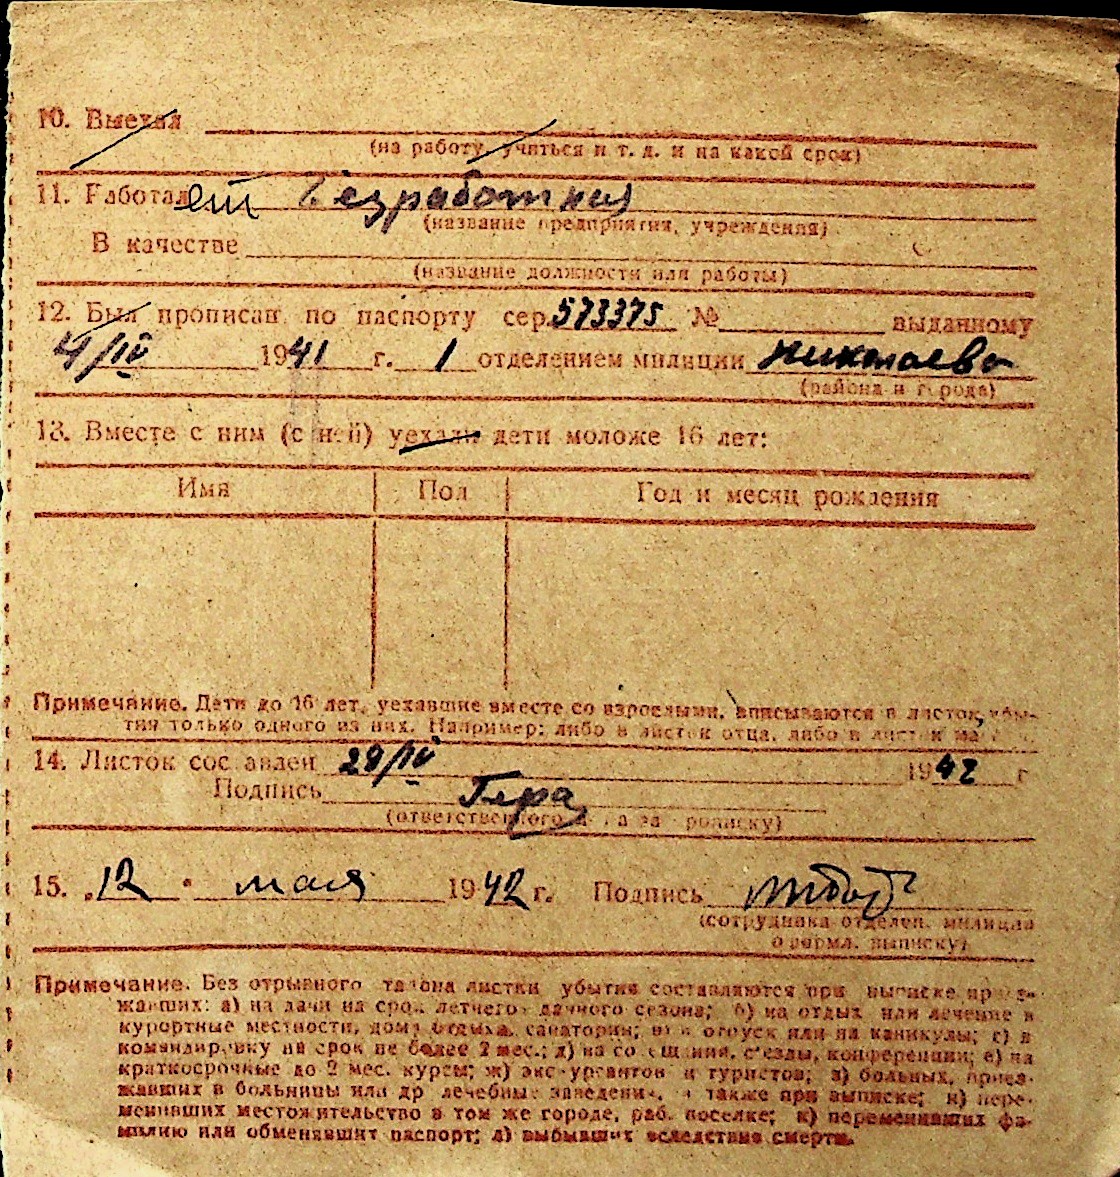 10. Выехал
(на работу, учиться и т. д. и на какой срок)
11. Работал ет безработная
(название предприятия, учреждения)
В качестве
(название должности или работы)
12. Был прописан по паспорту сер. 573375 № выданному
4/IV 1941 г. 1 отделением милиции Николаева
(района и города)
13. Вместе с ним (с ней) уехали дети моложе 16 лет:
Имя Пол Год и месяц рождения
Примечание. Дети до 16 лет, уехавшие вместе со взрослыми, вписываются в листок убы-
тия только одного из них. Например: либо в листок отца, либо в листок
14. Листок составлен 29/IV 1942 г
Подпись
(ответственного за прописку)
15. „12" мая 1942 г. Подпись
(сотрудника отделен. милиции
оформл. выписку)
Примечание. Без отрывного талона листки убытия составляются при выписке приез-
жавших: а) на дачи на срок летнего дачного сезона; б) на отдых или лечение в
курортные местности, дома отдыха, санатории; в) в отпуск или на каникулы; г) в
командировку на срок не более 2 мес.; д) на совещания, съезды, конференции; е) на
краткосрочные до 2 мес. курсы; ж) экскурсантов и туристов; з) больных, приез-
жавших в больницы или др лечебные заведения, а также при выписке; и) пере-
менивших местожительство в том же городе, раб. поселке; к) переменивших фа-
милию или обменявших паспорт; л) выбывших вследствие смерти.